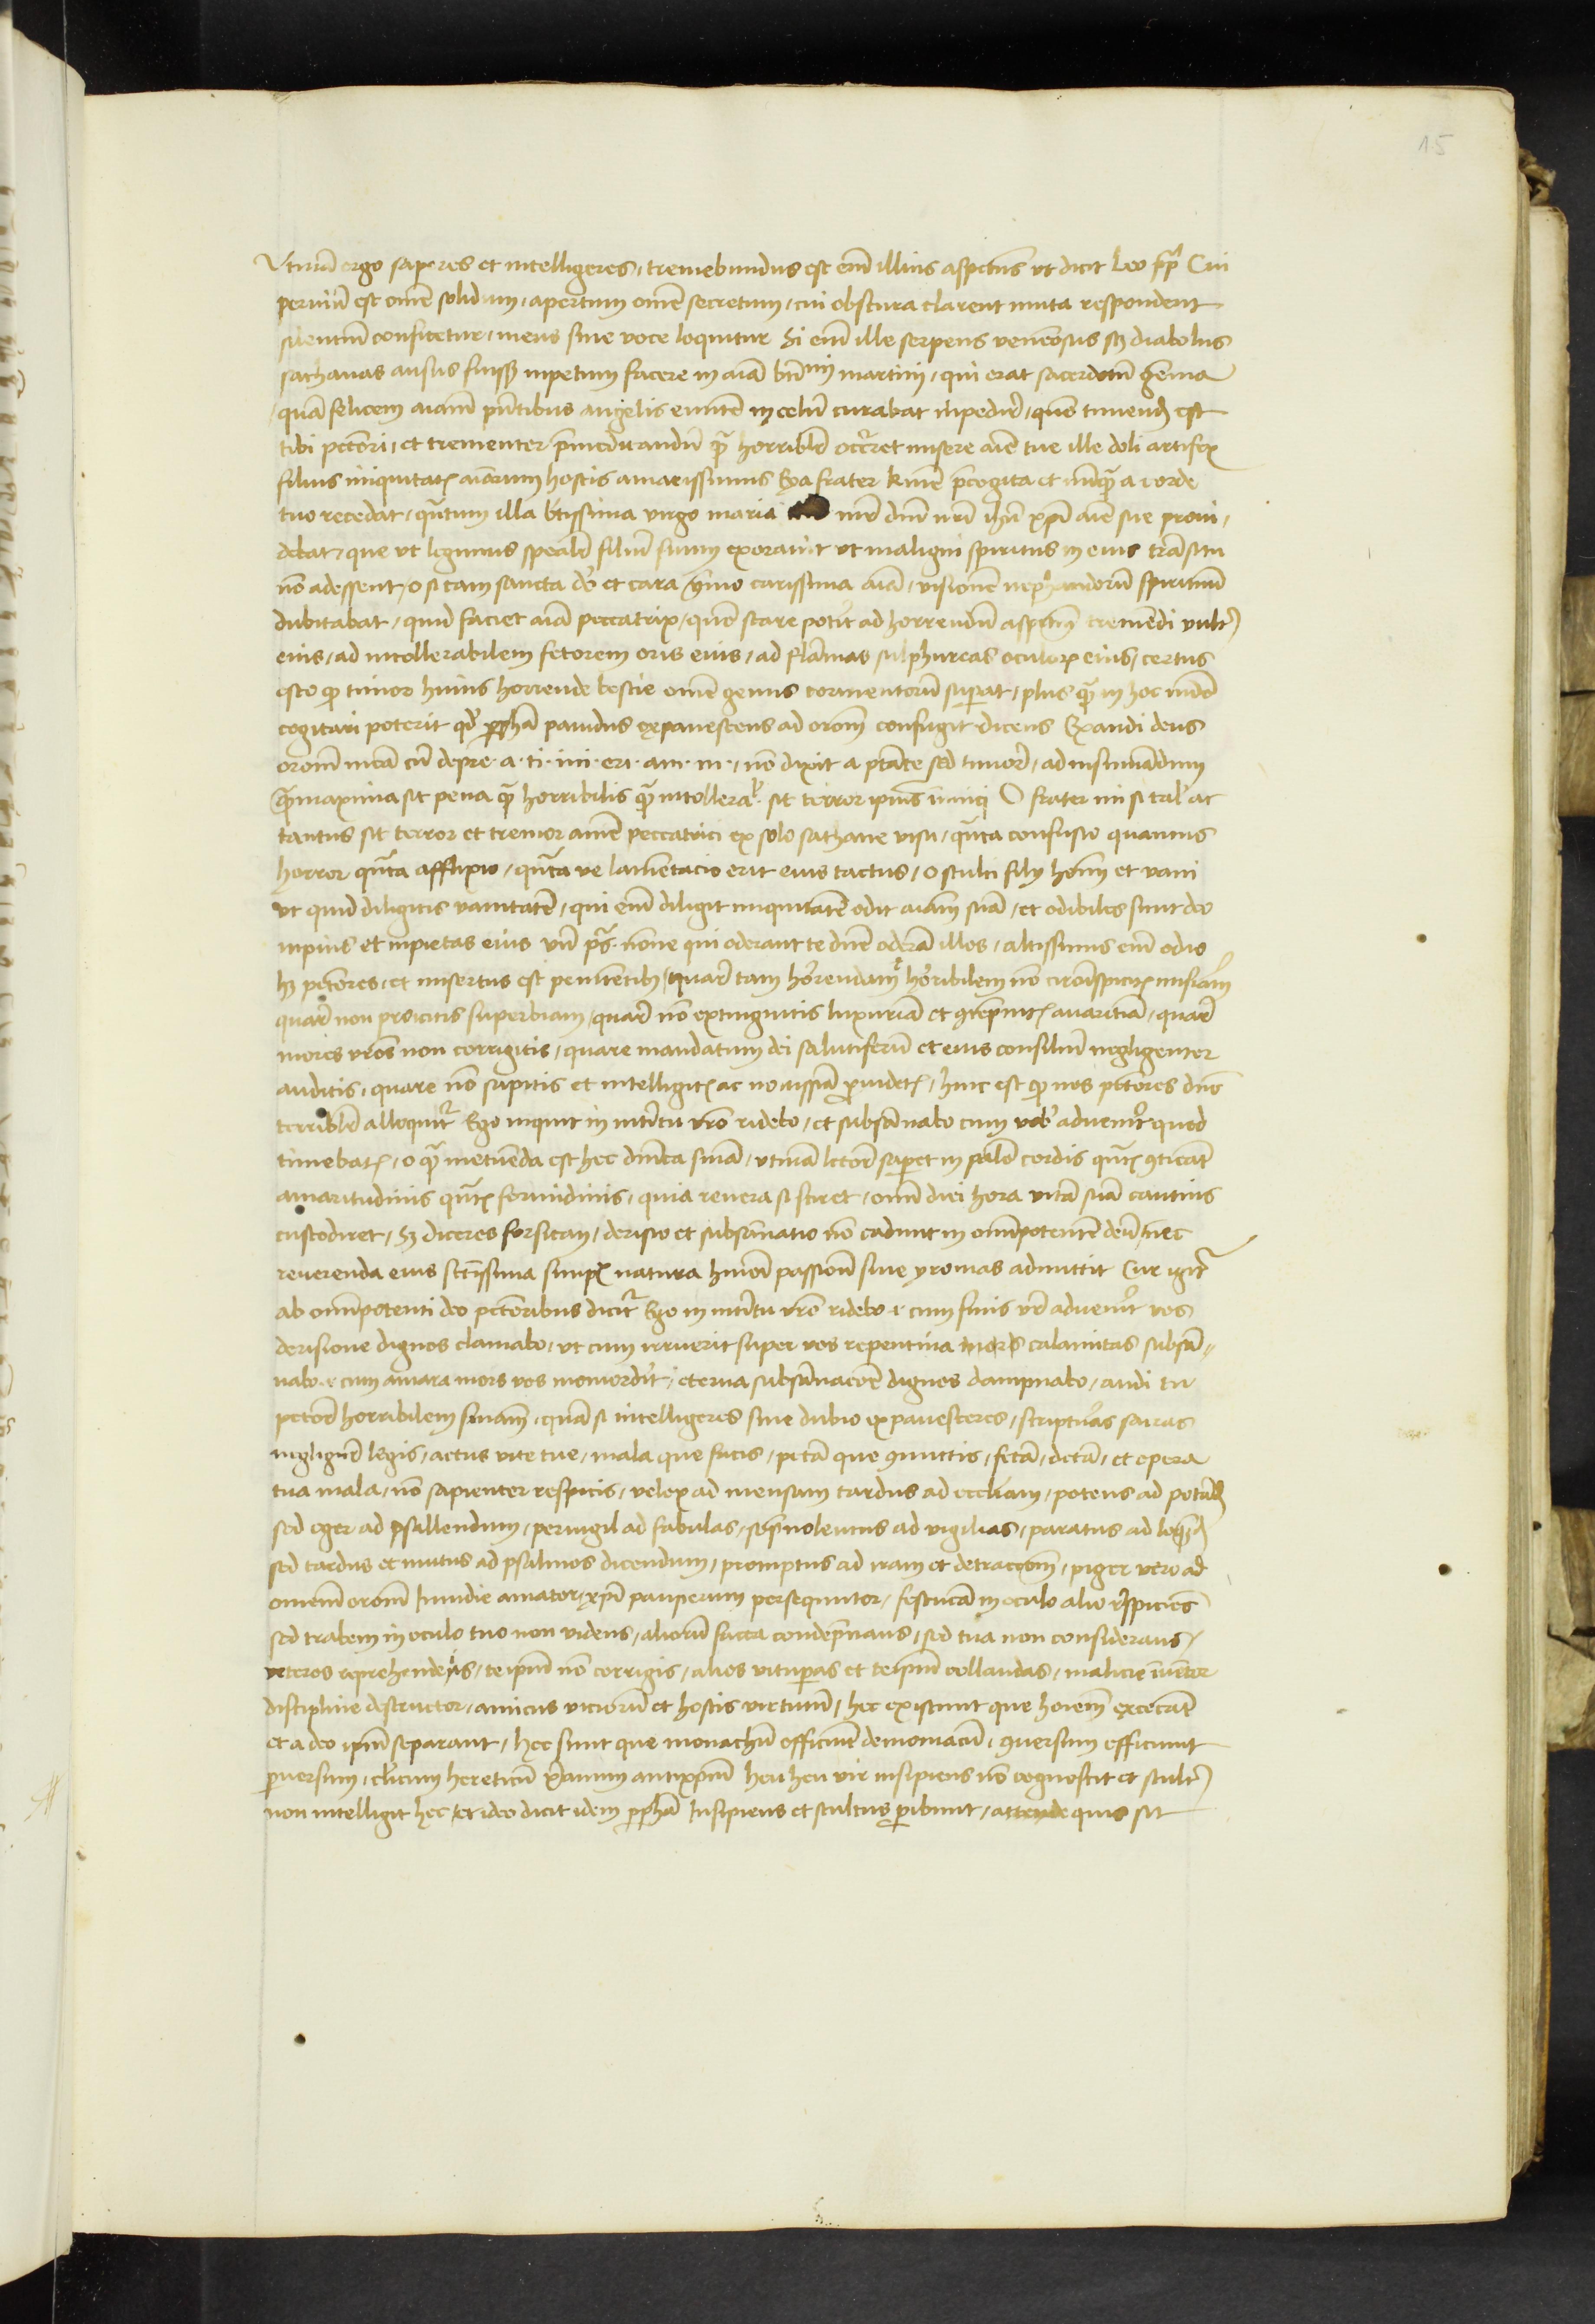 15
Vtinā ergo saperes et intelligeres, tremebundus est enī illius aspectus vt dicit Leo pp̄ Cui
peruiū est om̄e solidum, apertum om̄e secretum, cui obscura clarent muta respondent
silentiū confitetur, mens sine voce loquitur Si enī ille serpens venenosus scꝫ diabolus
sathanas ausus fuissꝫ inpetum facere in aīam btīssimi martini, qui erat sacerdotū gēma
quā felicem aīam pn̄tibus angelis euntē in celū curabat inpedir̄, quō timend est
tibi pctōri, et trementer p̄meditandū qͣ horriblr̄ occr̄ret misere aīe tue ille doli artifex
filius iniquitatꝭ aīarum hostis amarissimus Eya frater k̄mē p̄cogita et nūqͣ a corde
tuo recedat, qͣntum illa btīssima virgo maria mr̄ dnī nrī ihū xp̄i aīe sue proui,
debat, que vt legimus spealr̄ filiū suum exorauit vt maligni spiritus in eius trāsitu
nō adessent, o si tam sancta dō et cara ymo carissima aīa, visionē nephandorū spirituū
dubitabat, quid faciet aīa peccatrix, quō stare potūt ad horrendū aspectū tremēdi vultꝰ
eius, ad intollerabilem fetorem oris eius, ad flāmas sulphureas oculorꝫ eius, certus
esto qp̄ timor huius horrende bestie om̄e genus tormentorū superat, plus qͣ in hoc mūdo
cogitari poterit qd̄ pp̄ha pauidus expauescens ad orōnem confugit dicens Exaudi deus
orōnem meā cū depre. a. ti. ini. eri. am. m., nō dixit a ptāte sed timor̄, ad insinuādum
qͣ maxima sit pena qͣ horribilis qͣ intollerabl. sit terror ipius inimici O frater mi si tal' ac
tantus sit terror et tremor anīe peccatrici ex solo sathane visu, qͣnta confusio quantus
horror qͣnta afflixio, qͣnta ve lamentacio erit eius tactus, o stulti filij homī et vani
vt quid diligitis vanitatē, qui enī diligit iniquitatē odit aīam suā, et odibiles sunt deo
inpius et inpietas eius vn̄ ps. nōne qui oderant te dn̄e oderā illos, altissimus enī odio
hꝫ pctōres, et misertus est penitētibꝫ quar̄ tam horrendam et horribilem nō circūspicitꝭ miseriam
quar̄ non proicitis superbiam, quar̄ nō extinguitis luxuriā et cōprimitꝭ avaritiā, quar̄
mores vros non corrigitis, quare mandatum dei salutiferū et eius consiliū negligenter
auditis, quare nō sapitis et intelligitꝭ ac nouissīa prouidetꝭ, hinc est qp̄ nos pctōres dnūs
terriblr̄ alloquit̄ Ego inquit in interitu vrō ridebo, et subsannabo cum vob' aduenerit quod
timebatꝭ, o qͣ metuēda est hec diuīna snīa, vtinā lector saperet in palato cordis qͣntū cōtineat
amaritudinis qͣntū formidinis, quia reuera si sciret, omnī diei hora vitā suā cautius
custodiret, Sꝫ diceres forsitan, derisio et subsānatio nō cadunt in omīpotentē deū, nec
reuerenda eius sctīssima simplex natura huiōi passionū siue yronias admittit Cur igit̄
ab omīpotenti deo pctōribus dicit̄ Ego in interitu vrō ridebo .i. cum finis vr̄ aduenerit vos
derisione dignos clamabo, vt cum irruerit super vos repentina mors calamitas subsā-
nabo .i. cum amara mors vos momordit, eterna subsānacōe dignos dampnabo, audi tu
pctōr horribilem snīam, quā si intelligeres sine dubio expauesceres, scripturas sacras
negligent̄ legis, actus vite tue, mala que facis, pctā que cōmittis, fctā, dctā, et opera
tua mala, nō sapienter respicis, velox ad mensam tardus ad eccliam, potens ad potand
sed eger ad psallendum, peruigil ad fabulas, sompnolentus ad vigilias, paratus ad loquēd
sed tardus et mutus ad psalmos dicendum, promptus ad iram et detraccōem, piger vero ad
omnem orōnem inuidie amator, xp̄i pauperum persequutor, festucā in oculo alio respiciens
sed trabem in oculo tuo non videns, aliorū facta condempnans, sed tua non considerans
ceteros reprehendens, te ipm̄ nō corrigis, alios vituperas et te ipm̄ collaudas, malicie inuētor
discipline destructor, amicus viciorū et hostis virtutū, hec existunt que hoiēm excecāt
et a deo ipm̄ separant, hec sunt que monachū efficiūt demoniacū, cōuersum efficiunt
peruersum, clericum hereticū xp̄ianum antixpm̄ heu heu vir insipiens nō cognoscit et stultꝰ
non intelligit hec, et ideo dicit idem pp̄ha Insipiens et stultus peribunt, attende quis sit